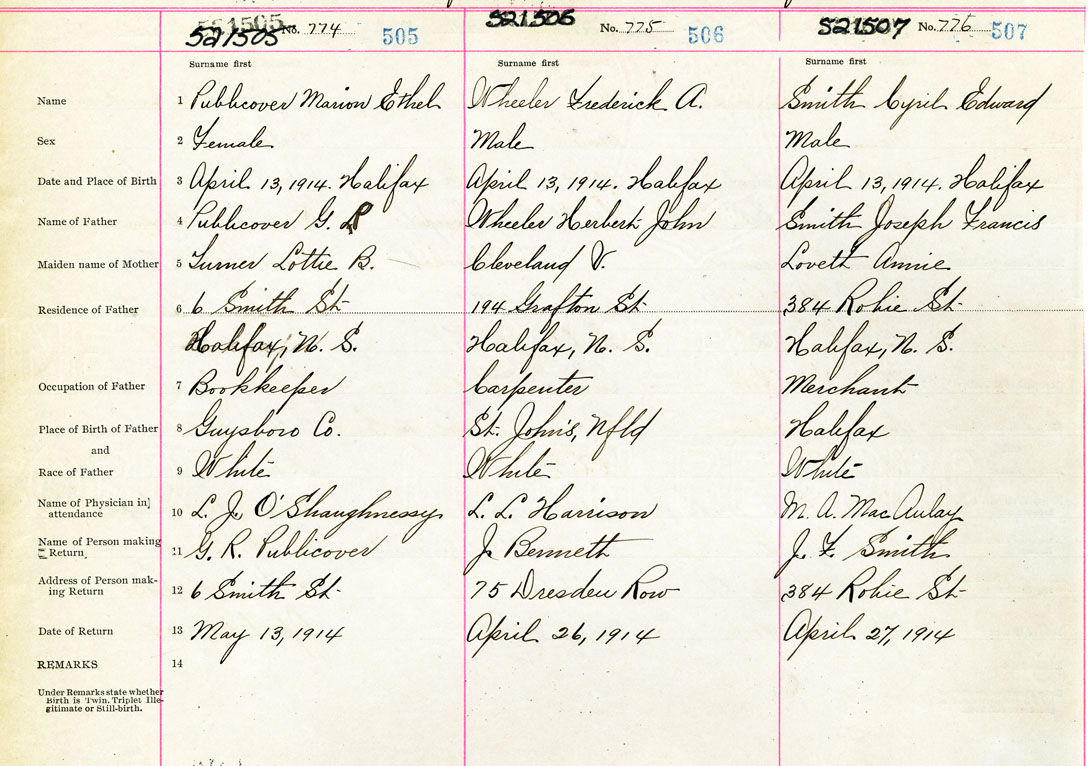 521505 No. 774 505 521506 No. 775 506 521507 No. 776 507
Surname first Surname first Surname first
Name 1 Publicover Marion Ethel Wheeler Frederick A. Smith Cyril Edward
Sex 2 Female Male Male
Date and Place of Birth 3 April 13, 1914. Halifax April 13, 1914. Halifax April 13, 1914. Halifax
Name of Father 4 Publicover G. R Wheeler Herbert John Smith Joseph Francis
Maiden name of Mother 5 Turner Lottie B. Cleveland V. Lovett Annie
Residence of Father 6 6 Smith St 194 Grafton St 384 Robie St
Halifax, N. S. Halifax, N. S. Halifax, N. S.
Occupation of Father 7 Bookkeeper Carpenter Merchant
Place of Birth of Father 8 Guysboro Co. St. John's, Nfld Halifax
and
Race of Father 9 White White White
Name of Physician in attendance 10 L. J. O'Shaughnessy L. L. Harrison M. A. MacAulay
Name of Person making Return 11 G. R. Publicover J. Bennett J. F. Smith
Address of Person making Return 12 6 Smith St 75 Dresden Row 384 Robie St
Date of Return 13 May 13, 1914 April 26, 1914 April 27, 1914
REMARKS 14
Under Remarks state whether
Birth is Twin, Triplet Ille-
gitimate or Still-birth.